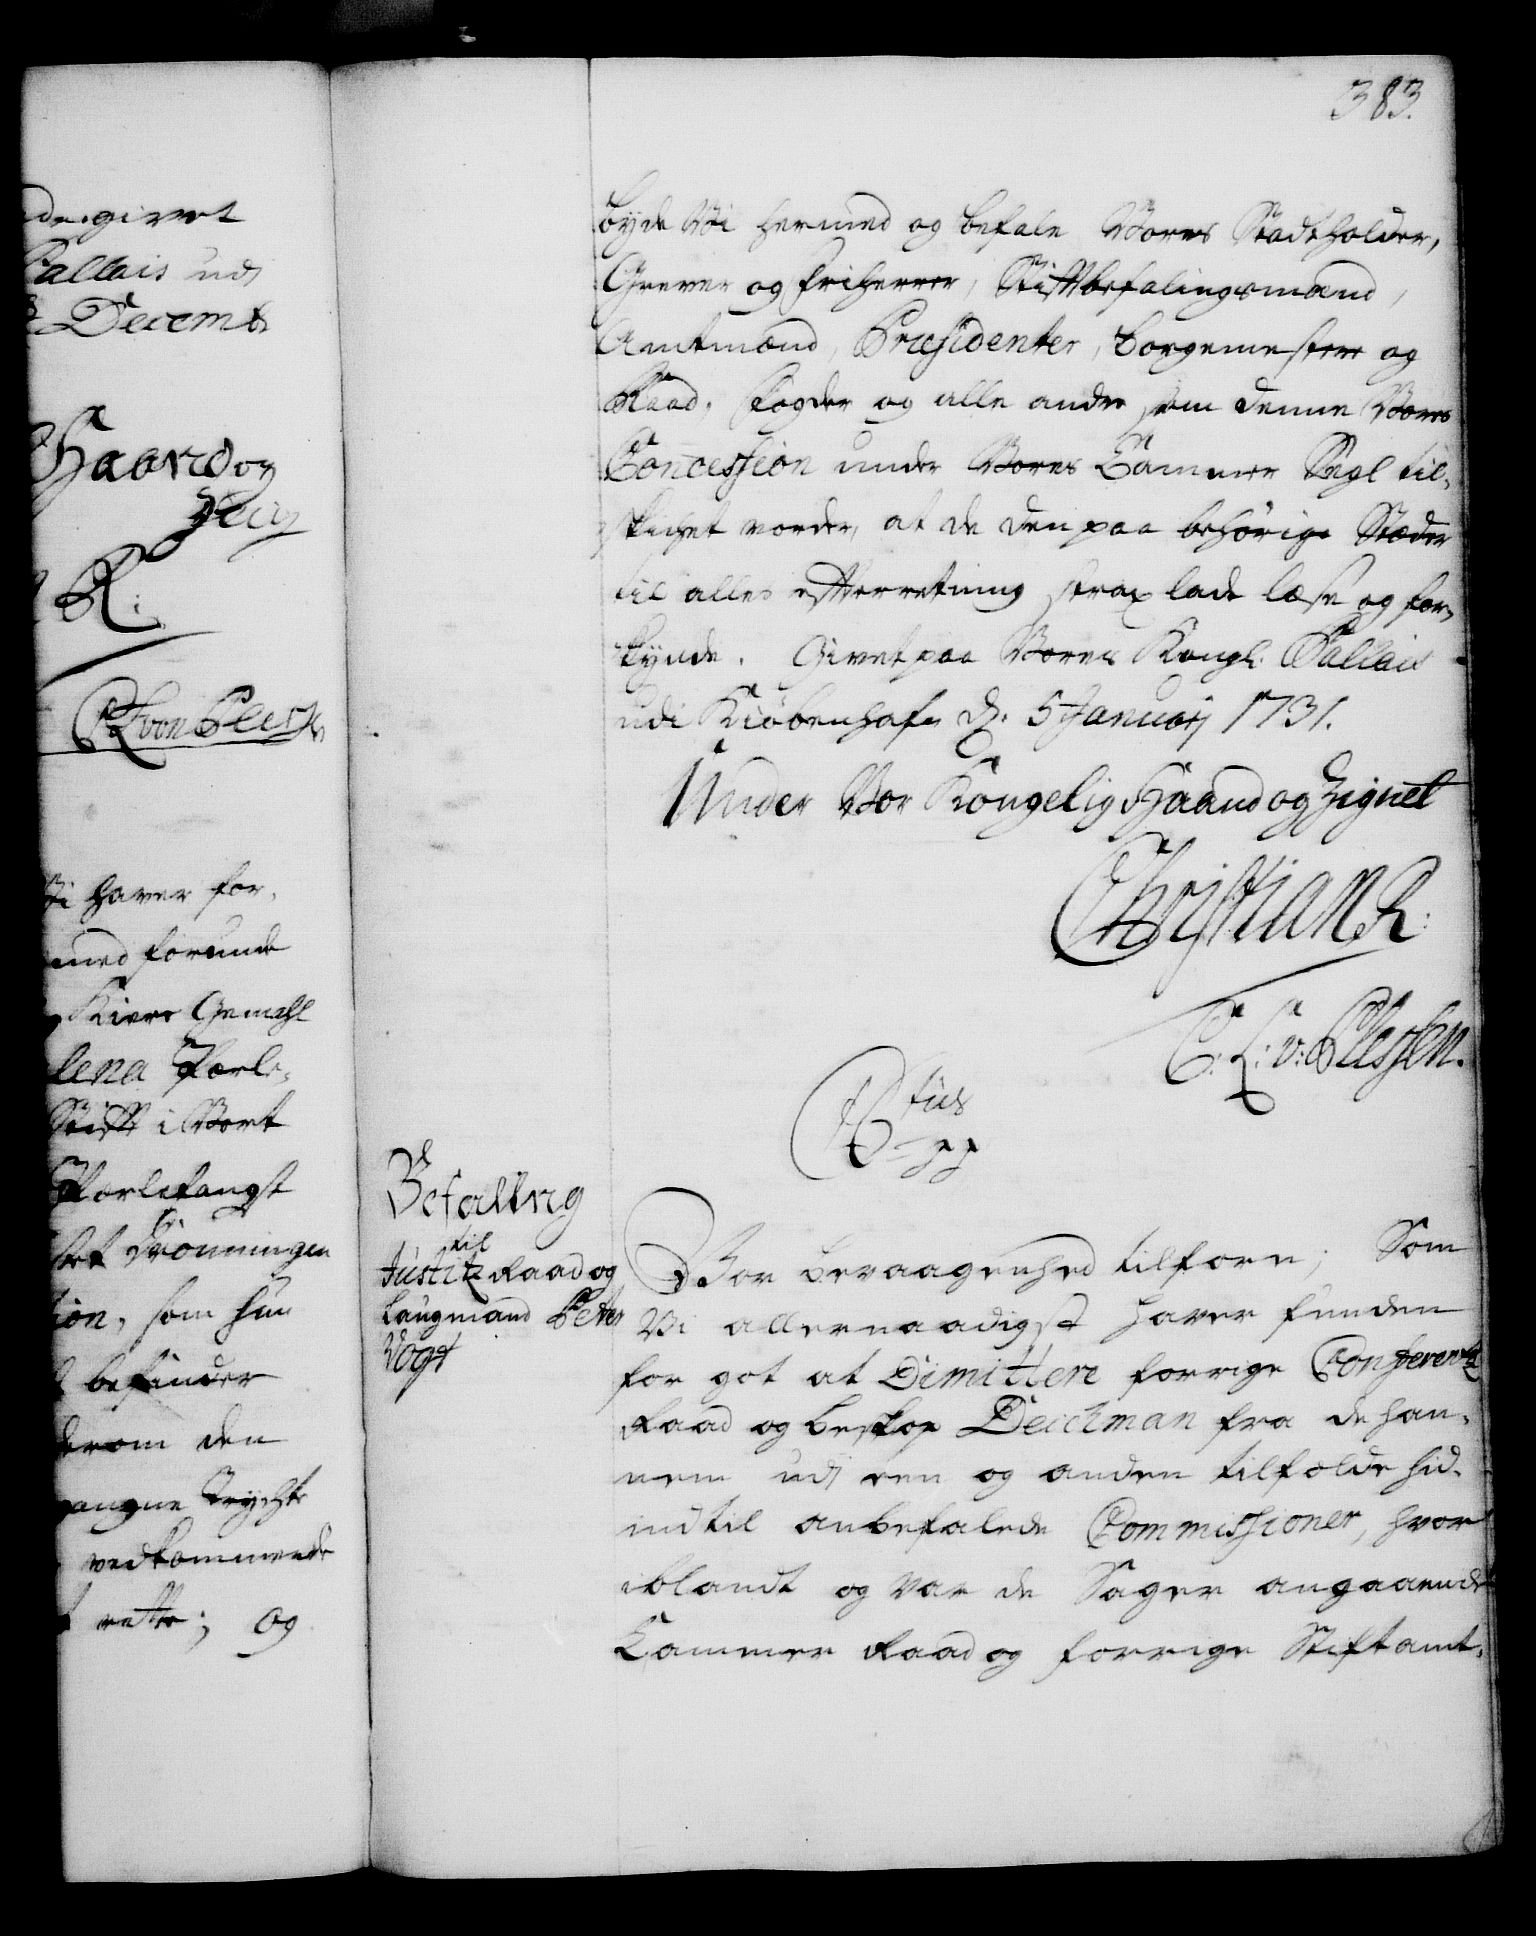 383.
de givet
Pallais udj
Decemb.
Haand og
R:
CA von Pless
Vi haver for,
med forunde
Kiere Gemahl
lena Perle,
Stift i Vort
Perlefangst
Dronningen
tion, som hun
befinder
derom den
angne Frychte
vedkommende
rette; og
byde Vi hermed og befale Vores Stadtholder,
Grever og friherrer, Stiftbefalingsmænd,
Amtmænd, Præsidenter, borgemestere og
Raad, Fogder og alle andre som denne Vores
Concession under Vores Cammer Segl til,
skicket vorder, at de den paa behörige Stæder
til alles efterretning strax lade læse og for,
kynde. Givet paa Vores Kongl: Pallais
udi Kiöbenhafn d. 5 Januarij 1731.
Under Vor Kongelig Haand og Zignet
Christian R:
C: A: v: Plessen.
Befaling
til
Justitz Raad og
Laugmand Peter
Vogt
Vor bevaagenhed tilforn; Som
Vi allernaadigst haver funden
for got at Dimittere forrige Conferentz
Raad og biskop Deichman fra de han,
nem udj een og anden tilfælde hid,
indtil anbefalede Commissioner, hvor
iblandt og var de Sager angaaende
Cammer Raad og forrige Stiftamt,